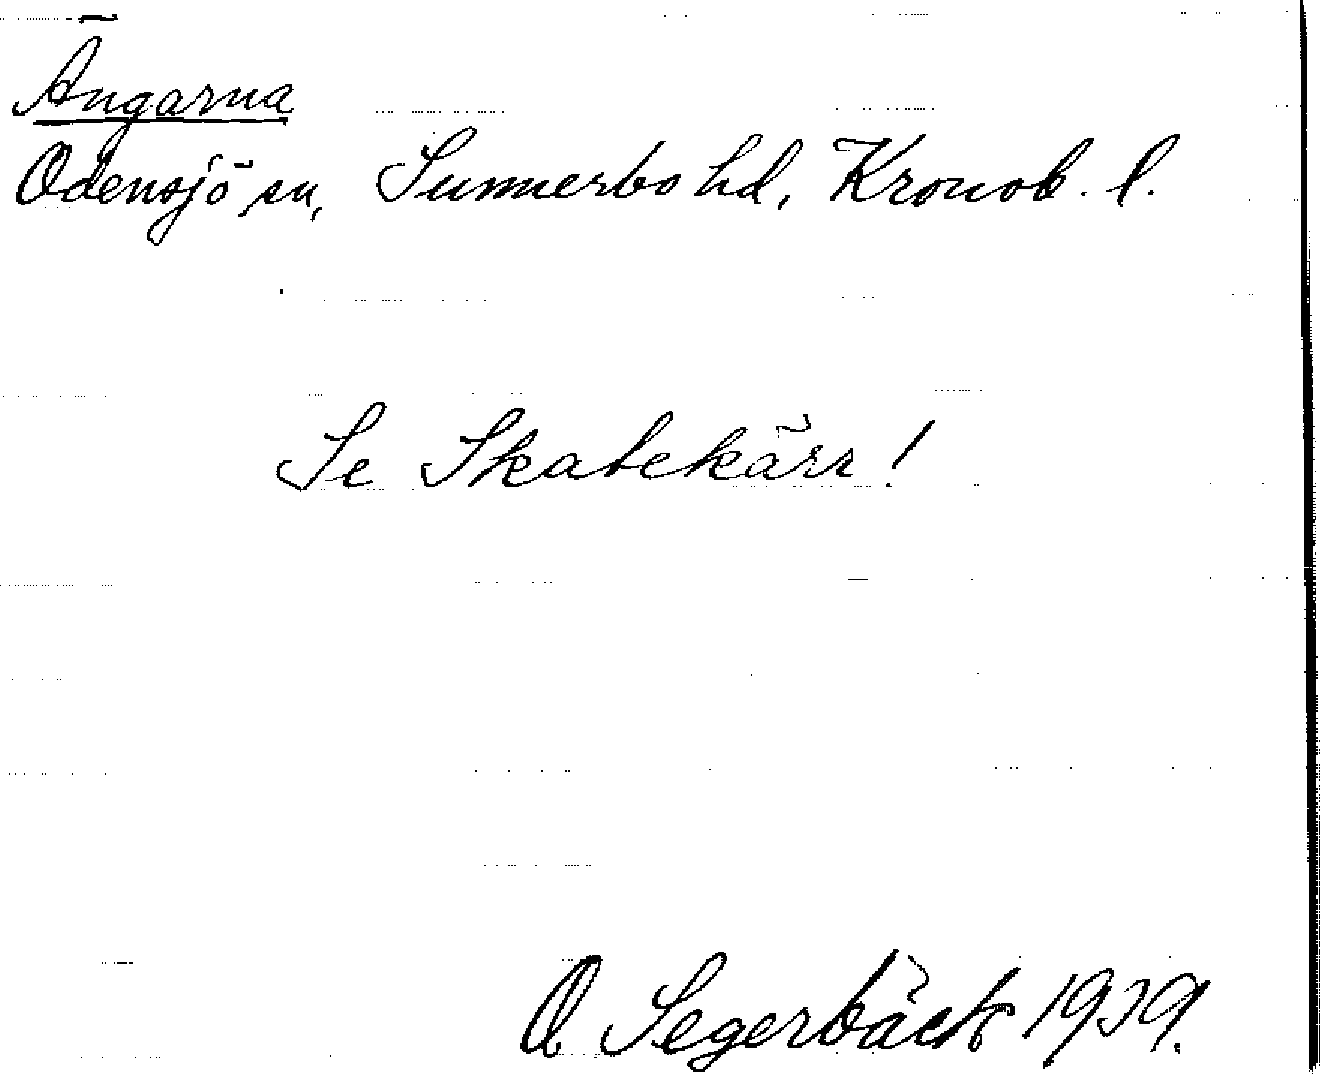 Ängarna
Odensjö sn, Sunnerbo hd, Kronob. l.
Se Skatekärr!
O Segerbäck 1939.